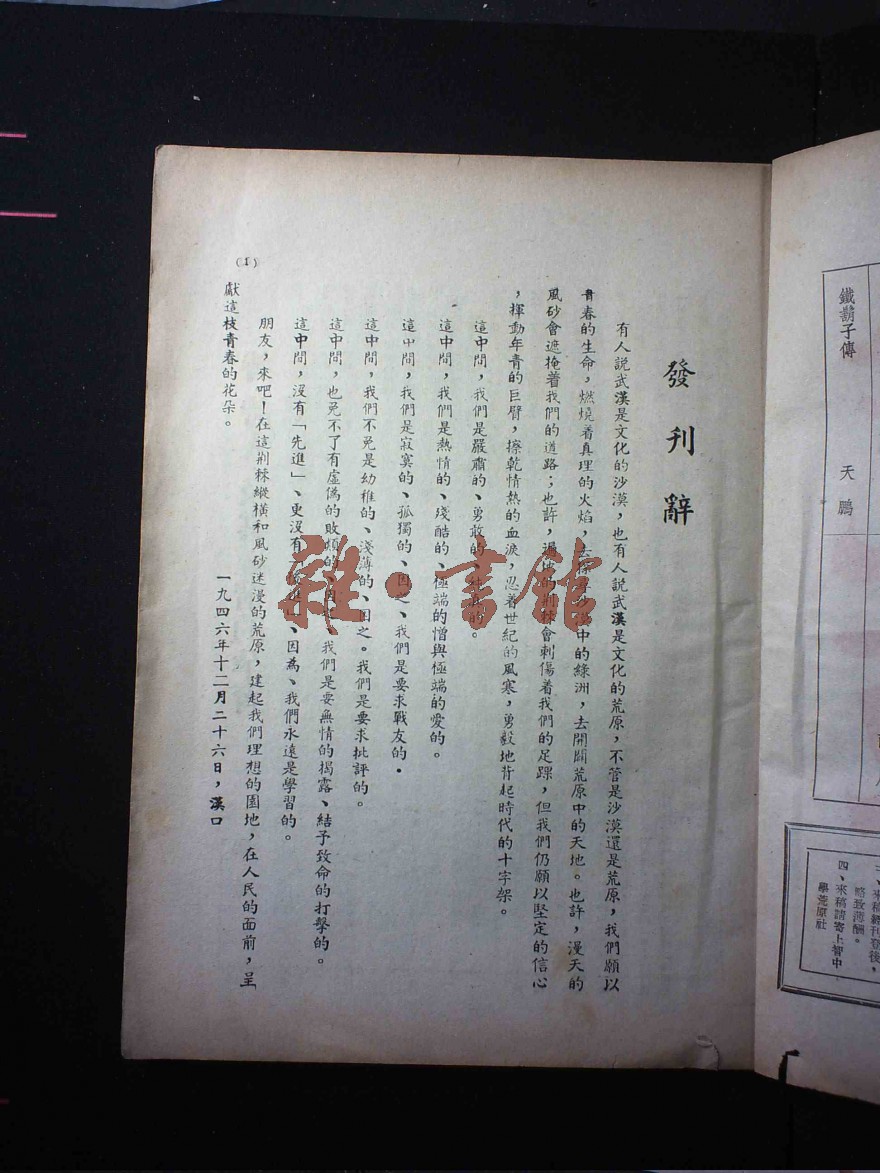 發刊辭
有人說武漢是文化的沙漠，也有人說武漢是文化的荒原，不管是沙漠還是荒原，我們願以
青春的生命，燃燒着真理的火焰，去探尋沙漠中的綠洲，去開闢荒原中的天地。也許，漫天的
風砂會遮掩着我們的道路；也許，遍地的荆棘會刺傷着我們的足踝，但我們仍願以堅定的信心
，揮動年青的巨臂，擦乾情熱的血淚，忍着世紀的風寒，勇毅地背起時代的十字架。
這中間，我們是嚴肅的、勇敢的、的。
這中間，我們是熱情的、殘酷的、極端的憎與極端的愛的。
這中間，我們是寂寞的、孤獨的、因之、我們是要求戰友的．
這中間，我們不免是幼稚的、淺薄的、因之。我們是要求批評的。
這中間，也免不了有虛偽的敗類的、因之、我們是要無情的揭露、結予致命的打擊的。
這中間，沒有「先進」、更沒有「進」、因為、我們永遠是學習的。
朋友，來吧！在這荆棘縱橫和風砂迷漫的荒原，建起我們理想的園地，在人民的面前，呈
獻這枝青春的花朵。
一九四六年十二月二十六日，漢口
(1)
雜·書館
鐵鷂子傳 天鵬
來稿經刊登後，
略致薄酬。
四、來稿請寄上智中
學荒原社